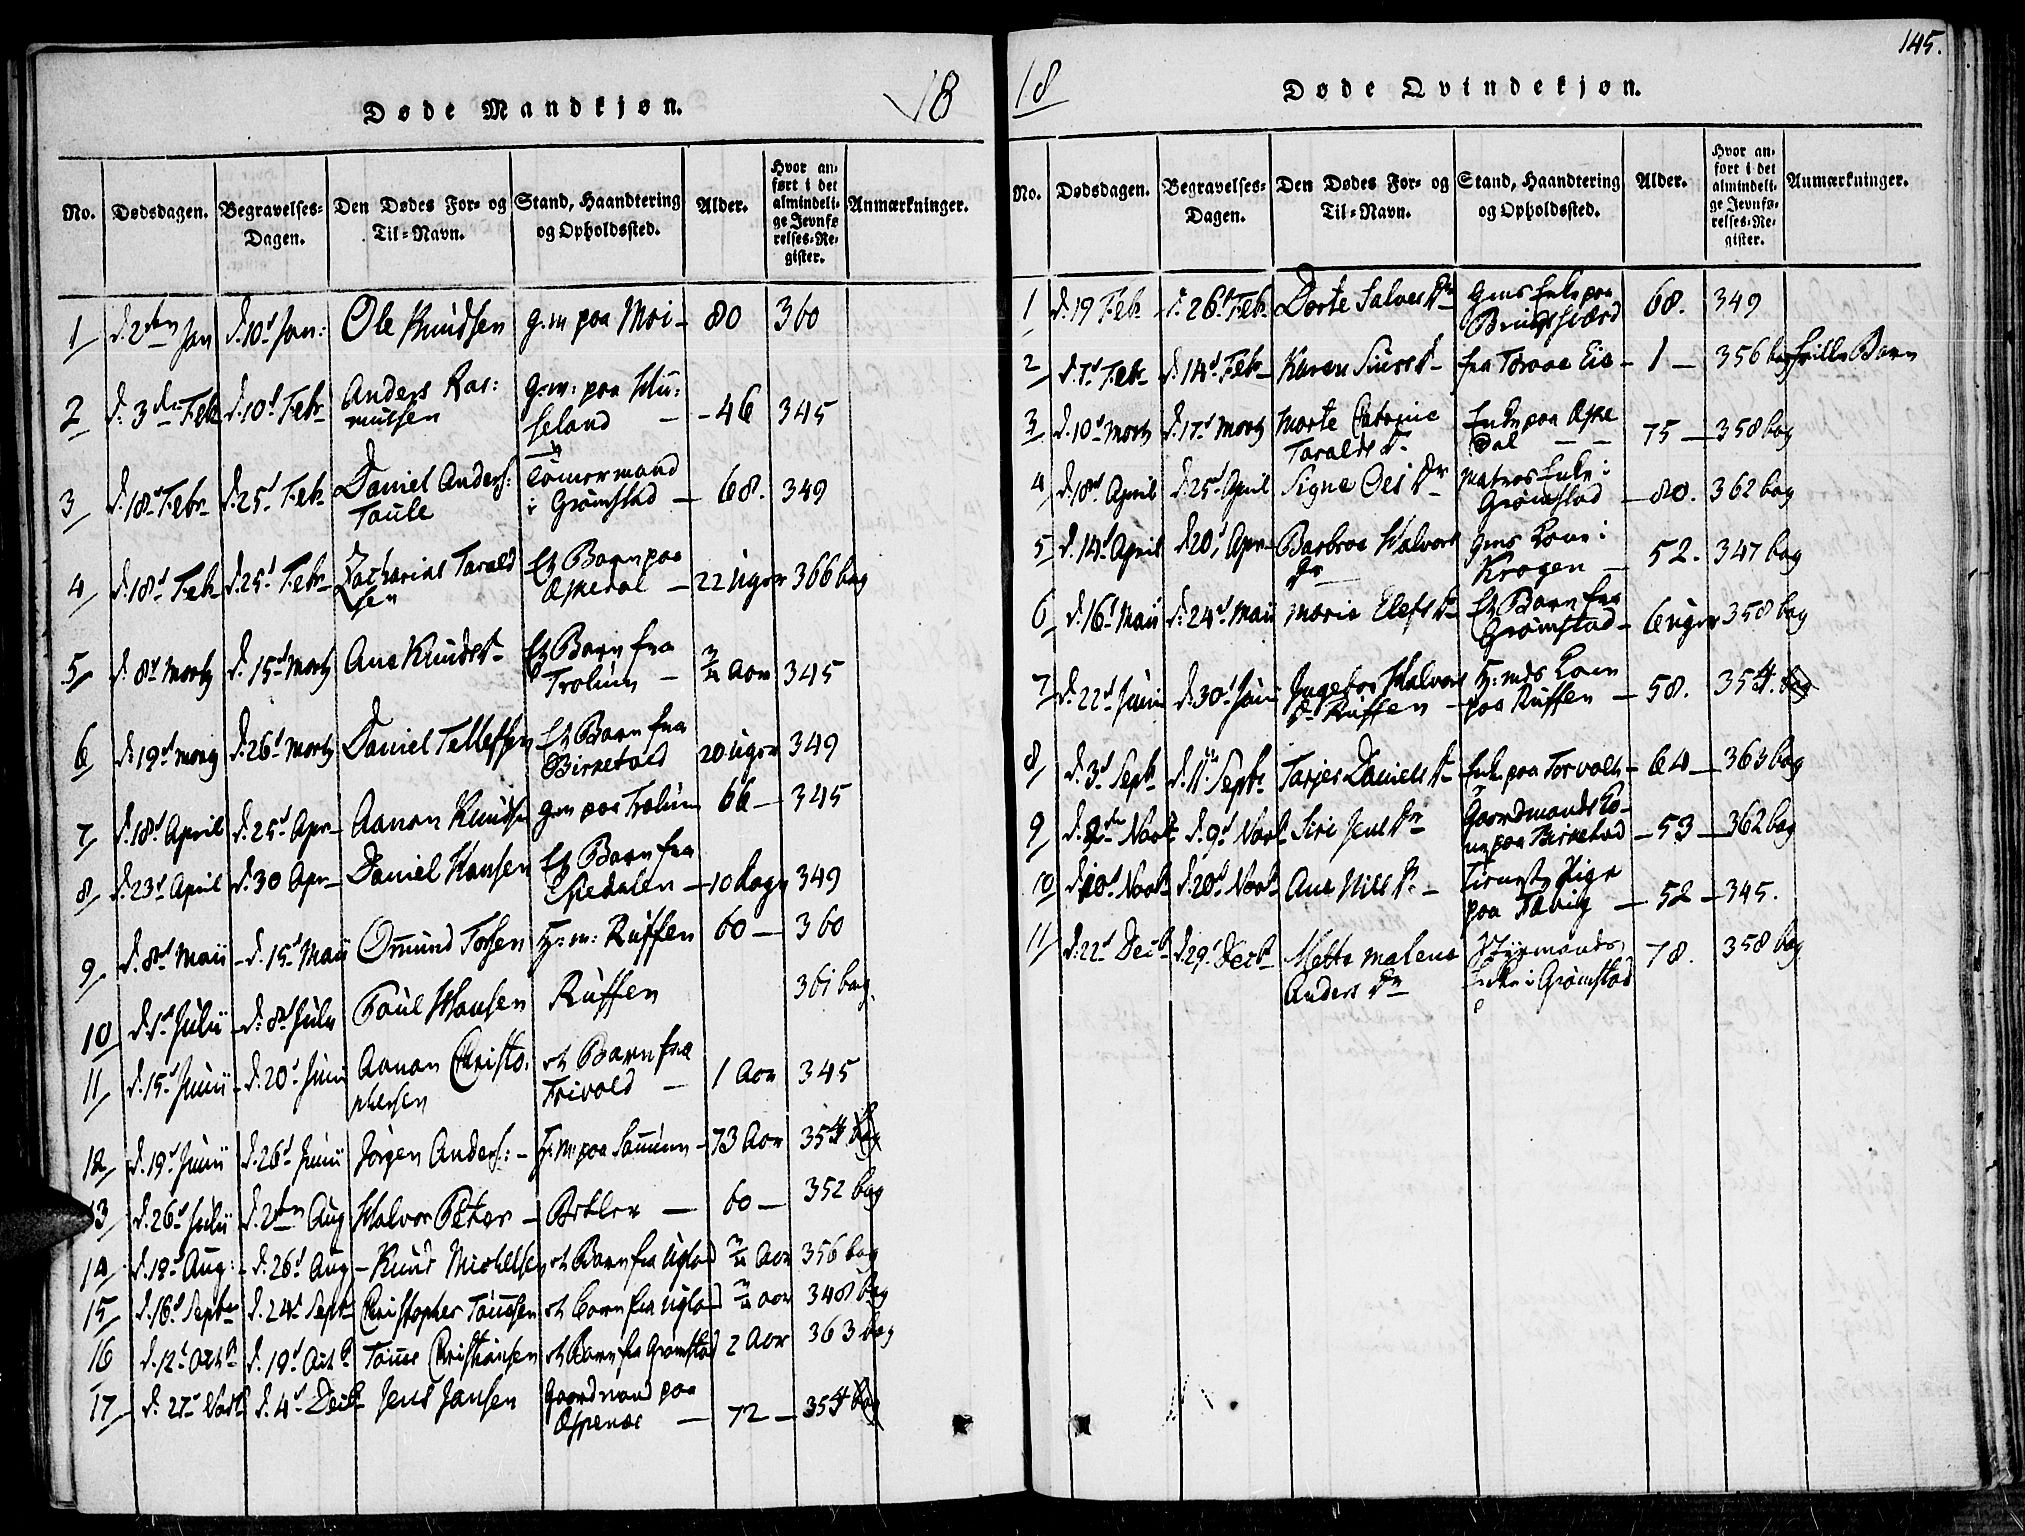 Døde Mandkjøn.
18
No.
Dødsdagen.
Begravelses-
Dagen.
Den Dødes For- og
Til-Navn.
Stand, Haandtering
og Opholdssted.
Alder.
Hvor an-
ført i det
almindeli-
ge Jevnfø-
relses-Re-
gister.
Anmærkninger.
1 d. 2den Jan d. 10d Jan: Ole Knudsen g:m paa Moi - 80 360
2 d: 3den Feb d. 10d Febr Anders Ras:
mussen
g:m: paa
seland - 46 345
3 d. 18d Febr d. 25d Feb Daniel Anders:
Taule
Tømermand
i Grømstad - 68. 349
4 d. 18d Feb d. 25d Febr Zacharias Tarald
sen
Et Barn paa
Æskedal - 22 uger 366 bag
5 d. 8d Martz d. 15d Martz Ane Knudsdr
Et Barn fra
Trolum - Aar 345
6 d. 19d d. 26d Martz Daniel Tellefsen Et Barn fra
Birketvedt 20 uger 349
7 d. 18d April d. 25d Apr Aanon Knudsen gm paa Trolum 66 - 345
8 d. 23d April d. 30 Apr Daniel Hansen Et Barn fra
Eskedalen - 10 dage 349
9 d. 8d Maii d. 15d Maii Omund Torsen H:m: Ruffen 60 - 360
10 d. 1d Julii d: 8d Julii Poul Hansen Ruffen 361 bag.
11 d. 15d Junii d. 20d Juni Aanon Christo-
phersen
et Barn fra
Frivold - 1 Aar 345
12 d. 19d Junii d. 26d Junii Jørgen Anders: - H:m: paa 73 Aar 354 bag
13 d. 26d Julii d. 2den Aug Halvor Peter - Betler - 60 - 352 bag
14 d. 19d Aug: - d. 26d Aug - Knud Michelsen et Barn fra Uglad Aar 356 bag
15 d. 16d Septr d. 24d Sept Christopher Tønnesen et Barn fra Uglad aar 348 bag
16 d. 12d Octb d. 19d Octb Tønnes Christiansen et Barn fra Grømstad 2 Aar 363 bag
17 d. 27d Novb d. 4d Decb Jens Jansen Gaardmand paa
Æspenæs - 72 - 354 bag
145.
18
Døde Qvindekjøn.
No.
Dødsdagen.
Begravelses-
Dagen.
Den Dødes For- og
Til-Navn.
Stand, Haandtering
og Opholdssted.
Alder.
Hvor an-
ført i det
almindeli-
ge Jevnfø-
relses-Re-
gister.
Anmærkninger.
1 d. 19 Feb d. 26d Feb Dorte Salvesdr gms Enke paa
68. 349
2 d. 7d Feb d. 14d Feb Karen fra Eie - 1 - 356 bag Barn
3 d. 10d Martz d. 17d Martz Marte Catrine
Taraldsdr
Enke paa Æske
dal - 75 - 358 bag
4 d. 18d April d. 25d April Signe Oesdr Matros Enke i
Grømstad - 80. 362 bag
5 d. 14d April d. 20d Apr Barbroe Halvors
dr
gms Kone i
Krogen - 52. 347 bag
6 d. 16d Maii d: 24d Maii Marie Elefsdr Et Barn fra
Grømstad - 6 uger 358 bag
7 d. 22d Juni d. 30d Juni Ingebor Halvors
dr Ruffen
H:mds Kone
paa Ruffen - 58. 354. bag
8 d. 3d Sept d. 11te Septr Tarjer Danielsdr Enke paa 64 - 363 bag
9 d. 2den Novb d. 9d Novb Siri Jensdr Gaardmands Ko-
ne paa Birketvedt - 53 - 362 bag
10 d. 10d Novb d. 20d Novb Ane Nilsdr - Tieneste Pige
paa - 52 - 345.
11 d: 22d Decb d. 29d Decb Mette Malene
Andersdr
Styrmands
Enke i Grømstad 78. 358 bag